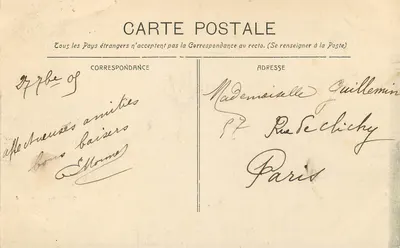 CARTE POSTALE
Tous les Pays étrangers n'acceptent pas la Correspondance au recto. (Se renseigner à la Poste)
CORRESPONDANCE
27 7bre 05
affectueuses amitiés
bons baisers
ADRESSE
Mademoiselle Guillemin
57 Rue de Clichy
Paris